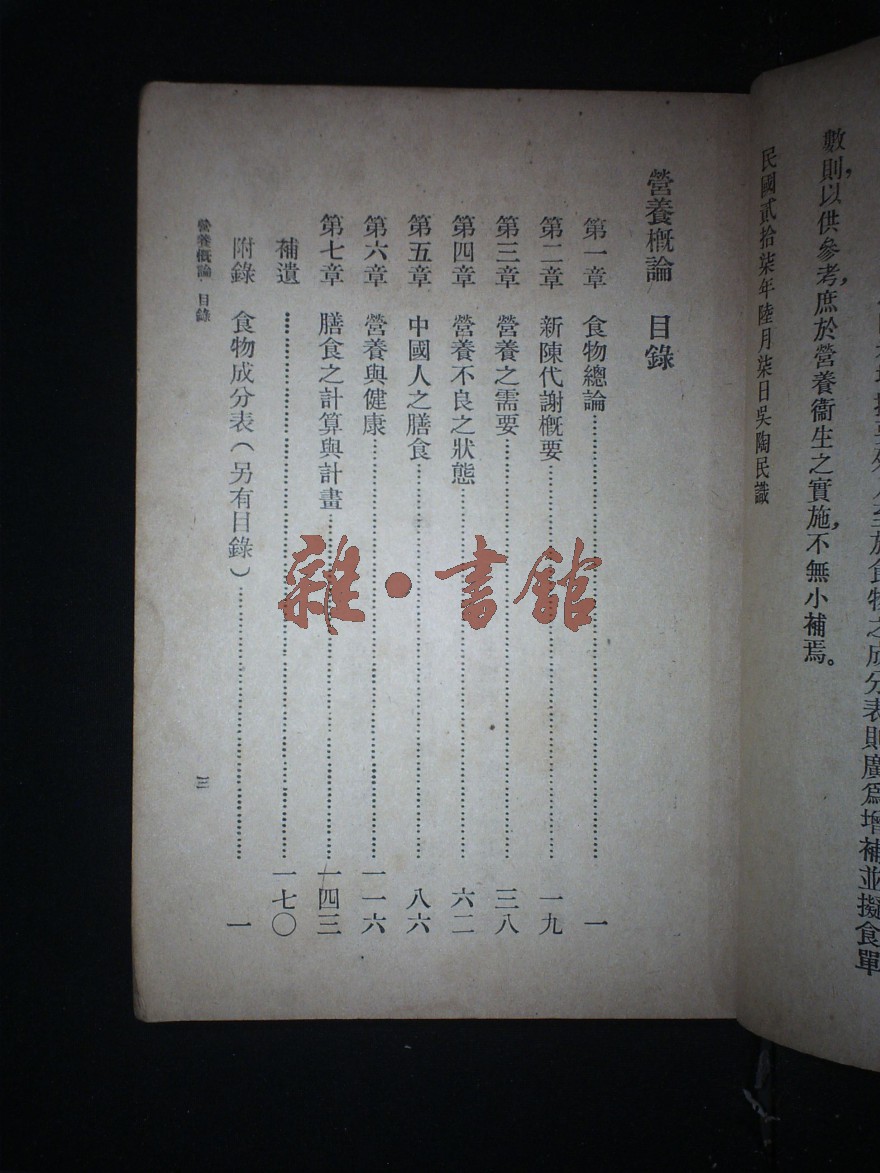 於食物之成分表則廣爲增補並擬食單
數則,以供參考,庶於營養衞生之實施,不無小補焉。
民國貳拾柒年陸月柒日吳陶民識
營養概論 目錄
第一章 食物總論 一
第二章 新陳代謝概要 一九
第三章 營養之需要 三八
第四章 營養不良之狀態 六二
第五章 中國人之膳食 八六
第六章 營養與健康 一一六
第七章 膳食之計算與計畫 一四三
補遺 一七〇
附錄 食物成分表(另有目錄) 一
營養概論 目錄 三
雜·書館